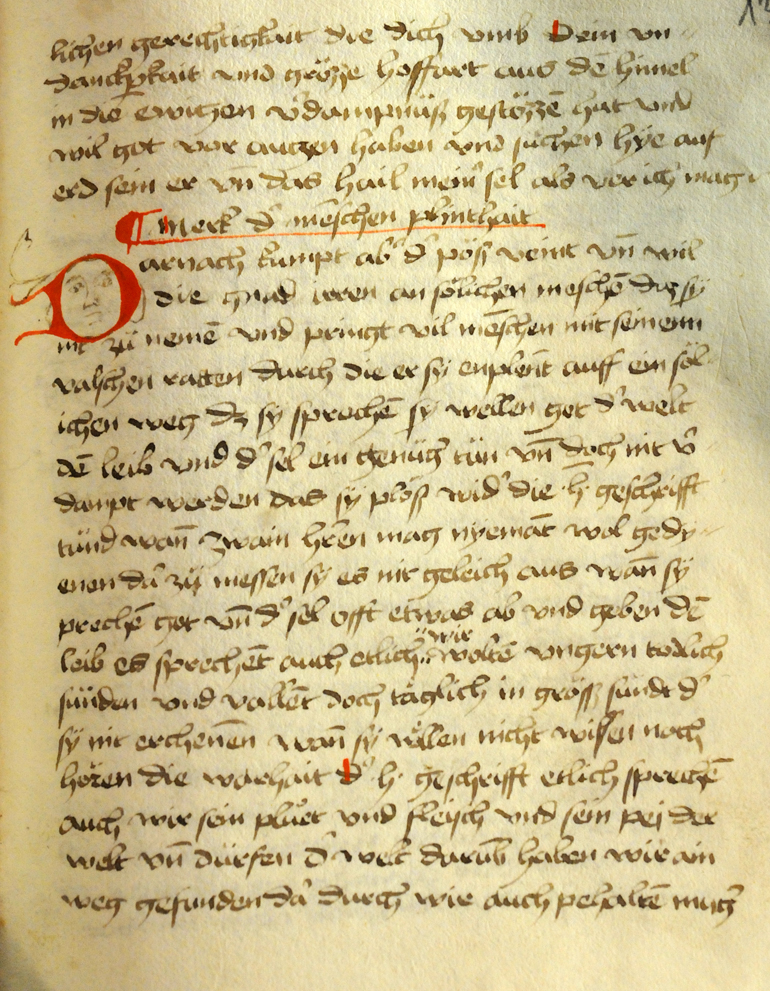 lichen gerechtigkait die dich vmb Dein vn
danckp̄kait vnd grözze hoffart aus dē himel
in die ewigen v̓dampnüß gestözzē hat vnd
wil got vor augen haben vnd suchen hye auf
erd sein er vn̄ das hail mein̓ sel als verr ich mag
¶ Merk d̓ mēschen plinthait
Darnach kumpt ab̓ d̓ pöß veint vn̄ wil
die gnad irren an sölichen meschē daz sy
nit zü nemē vnd pringt vil mēschen mit seinem
valschen ratten durch die er sy enplent auff ein söl
ichen weg dz sy sprechē sy wellen got d̓ welt
dē leib vnd d̓ sel ein genüg tün vn̄ doch nit v̓
dampt werden das sy plöß wid̓ die h̄ geschrifft
tünd wan̄ zwain hr̄en mag nyemāt wol gedy
enen da zü messen sy es nit geleich aus wan̄ sy
prechē got vn̄ d̓ sel offt etwas ab vnd geben dē
leib es sprechēt auch etlich wir woltē vngern todlich
sünden vnd vallēt doch täglich in größ sündt d̓
sy nit erchenēn wan̄ sy wöllen nicht wissen noch
hören die warhait d̓ h. geschrifft etlich sprechē
auch wir sein plüet vnd fleisch vnd sein pei der
welt vn̄ dürfen d̓ welt darūb haben wir ain
weg gefunden da durch wir auch pehaltē mug̓